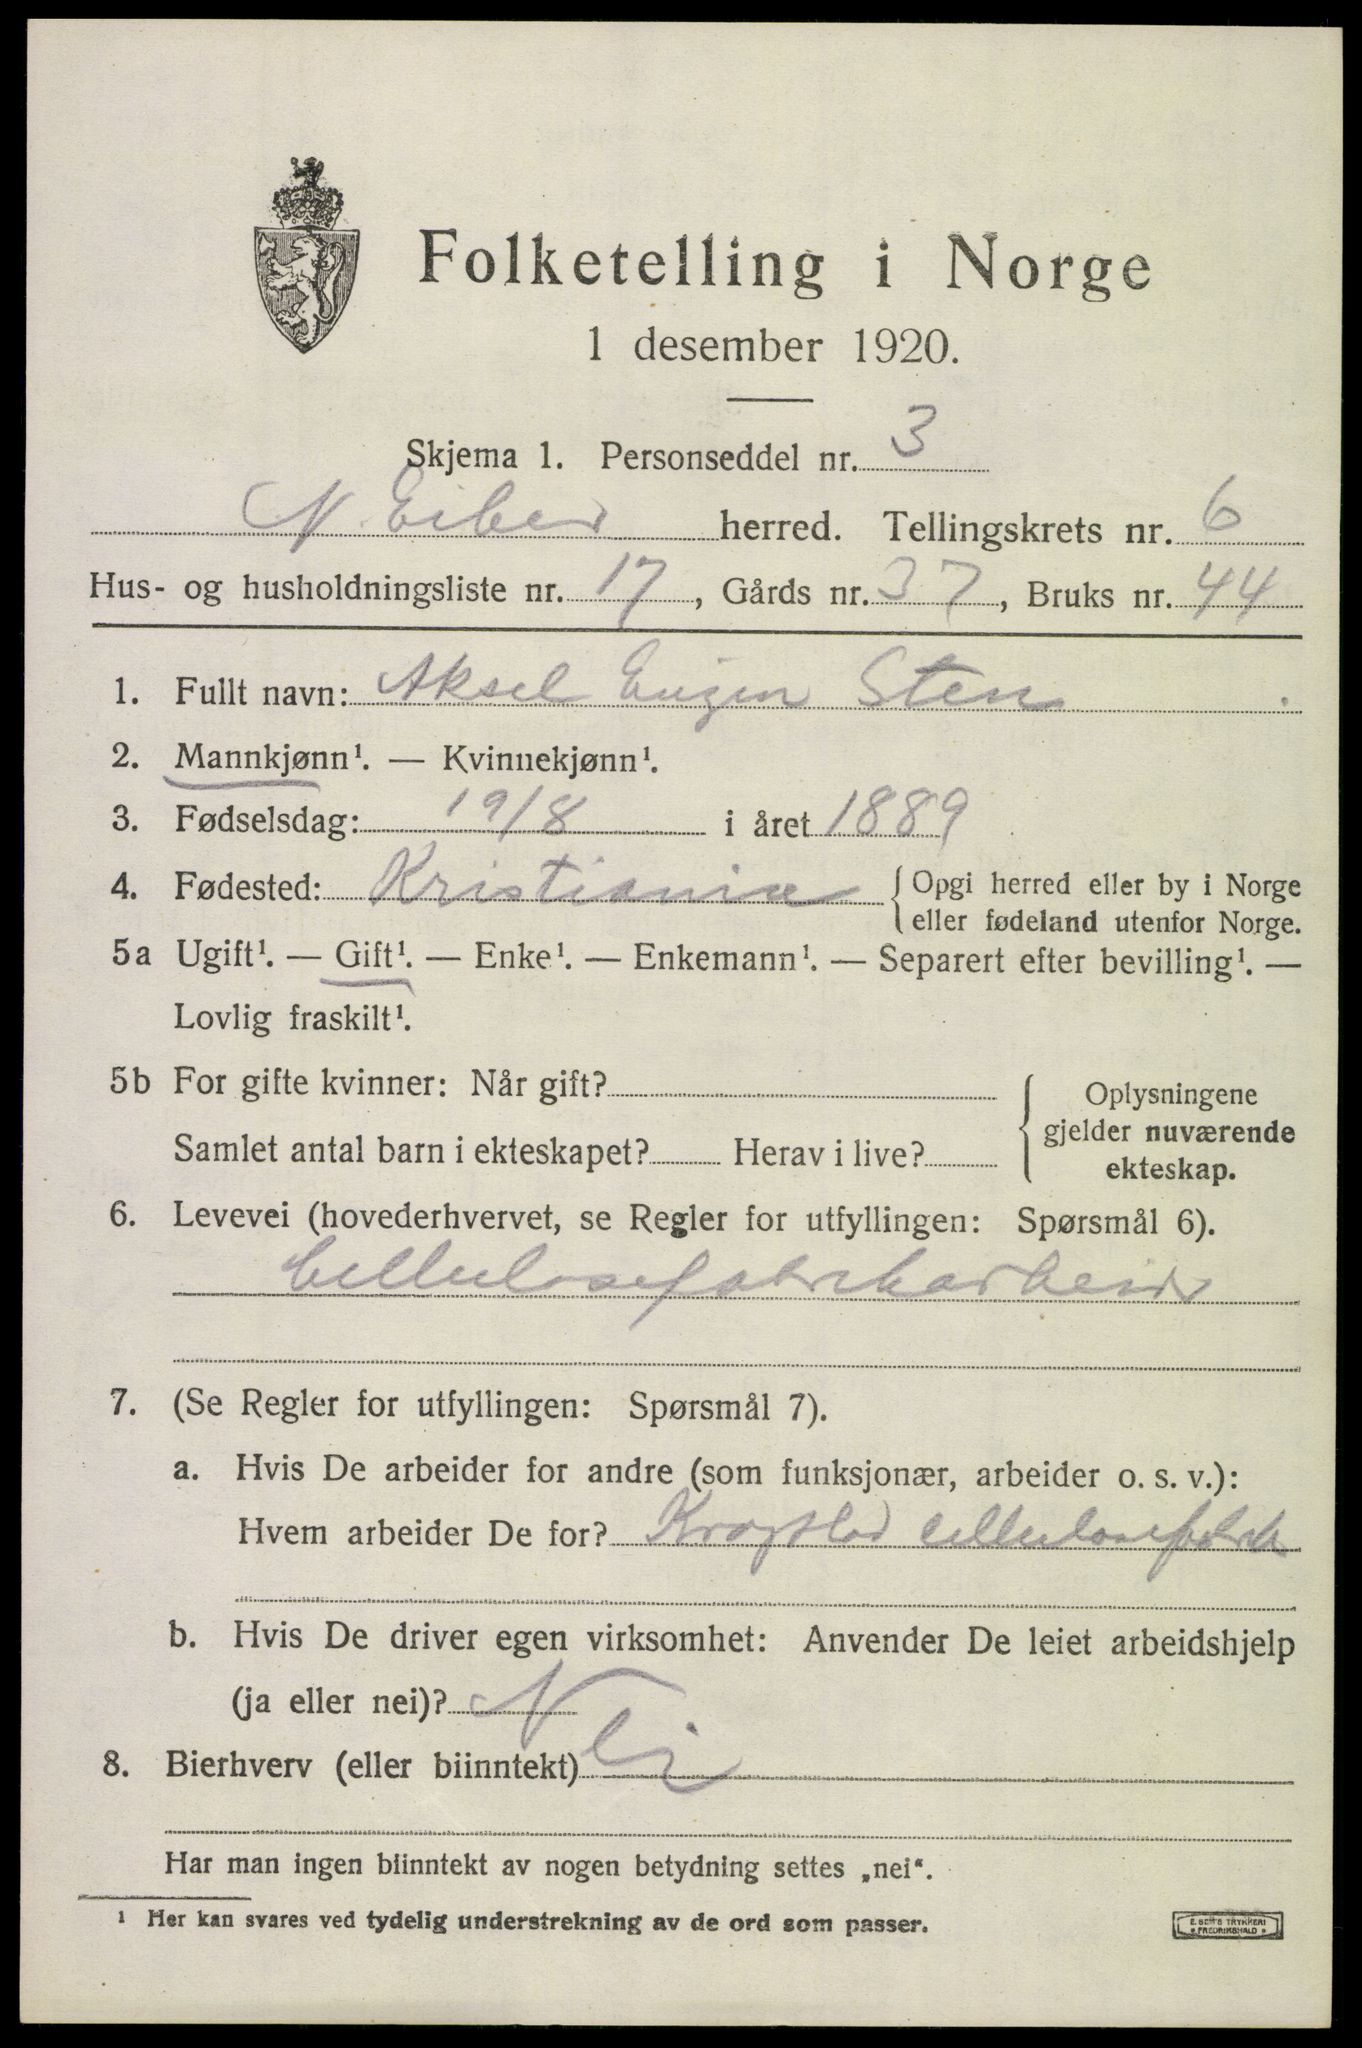 Folketelling i Norge
1 desember 1920.
Skjema 1. Personseddel nr. 3
N. Eiker herred. Tellingskrets nr. 6
Hus- og husholdningsliste nr. 17, Gårds nr. 37, Bruks nr. 44
1. Fullt navn: Aksel Eugen Sten
2. Mannkjønn¹. — Kvinnekjønn¹.
3. Fødselsdag: 19/8 i året 1889
4. Fødested: Kristiania { Opgi herred eller by i Norge
eller fødeland utenfor Norge.
5a Ugift¹. — Gift¹. — Enke¹. — Enkemann¹. — Separert efter bevilling¹. —
Lovlig fraskilt¹.
5b For gifte kvinner: Når gift?
Samlet antal barn i ekteskapet? Herav i live?
{ Oplysningene
gjelder nuværende
ekteskap.
6. Levevei (hovederhvervet, se Regler for utfyllingen: Spørsmål 6).
Cellulosefabrikarbeider
7. (Se Regler for utfyllingen: Spørsmål 7).
a. Hvis De arbeider for andre (som funksjonær, arbeider o. s. v.):
Hvem arbeider De for? Krogstad cellulosefabrik
b. Hvis De driver egen virksomhet: Anvender De leiet arbeidshjelp
(ja eller nei)?
8. Bierhverv (eller biinntekt) Nei
Har man ingen biinntekt av nogen betydning settes „nei“.
¹ Her kan svares ved tydelig understrekning av de ord som passer.
E. SEM'S TRYKKERI
• FREDRIKSHALD •